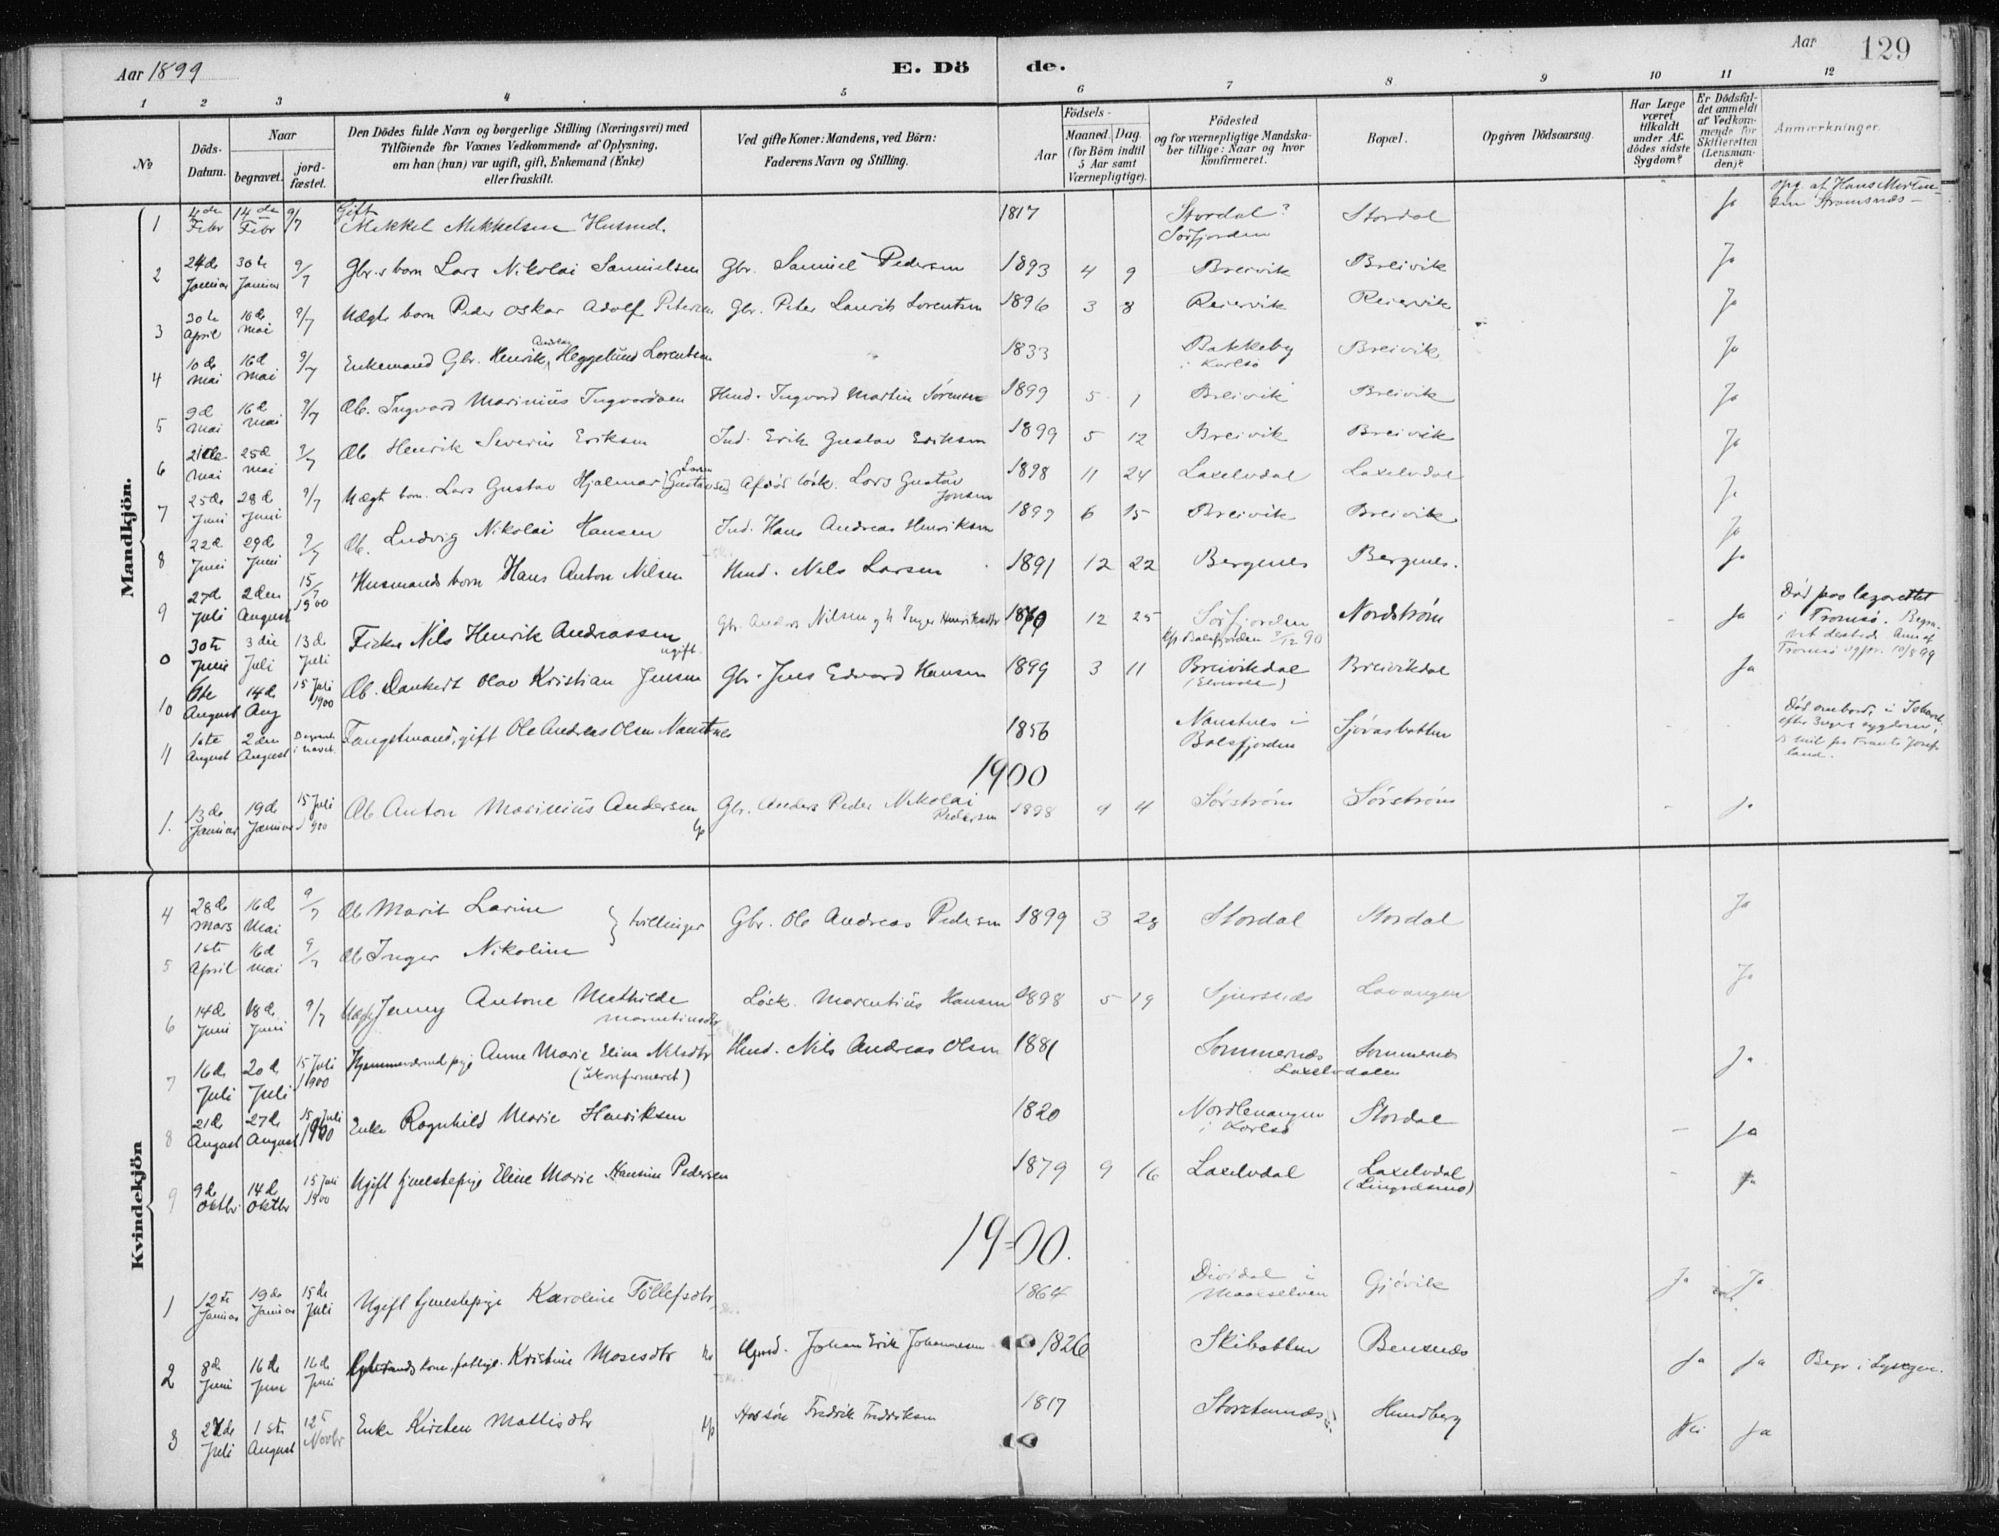 Aar 1899
E. Dö de.
Aar
129
1 2 3 4 5 6 7 8 9 10 11 12
No
Döds-Datum.
Naar
begravet.
jord-fæstet.
Den Dödes fulde Navn og borgerlige Stilling (Næringsvei) med
Tilföiende for Voxnes Vedkommende af Oplysning,
om han (hun) var ugift, gift, Enkemand (Enke)
eller fraskilt.
Ved gifte Koner: Mandens, ved Börn:
Faderens Navn og Stilling.
Födsels-
Aar
Maaned. Dag.
(for Börn indtil
5 Aar samt
Værnepligtige).
Födested
og for værnepligtige Mandska-
ber tillige: Naar og hvor
konfirmeret.
Bopæl.
Opgiven Dödsaarsag.
Har Læge
været
tilkaldt
under Af-
dödes sidste
Sygdom?
Er Dödsfal-
det anmeldt
af Vedkom-
mende for
Skifteretten
(Lensman-
den)?
Anmærkninger.
Mandkjön.
1 4de Febr 14de Febr 9/7 Gift Mikkel Mikkelsen Husmd. 1817 Stordal? Sörfjorden Stordal Ja opg. af Hans Morten-sen Stromsnæs
2 24de Januar 30te Januar 9/7 Gbr.s barn Lars Nikolai Samuelsen Gbr. Samuel Pedersen 1893 4 9 Breivik Breivik Ja
3 30te April 16de mai 9/7 Uægte barn Peder Oskar Adolf Petersen Gbr. Peter Laurits Lorentsen 1896 3 8 Reiervik Reiervik Ja
4 10de Mai 16de mai 9/7 Enkemand Gbr. Henrik Andreas Heggelund Lorentsen 1833 Bakkeby i Karlsö Breivik Ja
5 9d mai 16d mai 9/7 Æb. Ingvard Marinius Ingvardsen Husd. Ingvard Martin Sörensen 1899 5 1 Breivik Breivik Ja
6 21de mai 25d mai 9/7 Æb Henrik Severin Eriksen Ind. Erik Gustav Eriksen 1899 5 12 Breivik Breivik Ja
7 25de Juni 28d Juni 9/7 Uægte barn. Lars Gustav Hjalmar Larsen (Gustavsen) Afdöd lösk. Lars Gustav Jonsen 1898 11 24 Laxelvdal Laxelvdal Ja
8 22d Juni 29de Juni 9/7 Æb. Ludvig Nikolai Hansen Ind. Hans Andreas Henriksen 1899 6 15 Breivik Breivik Ja
9 27d Juli 2den August 15/7 1900 Husmands barn Hans Anton Nilsen Husd. Nils Larsen 1891 12 22 Bergenes Bergnes. Ja
0 30te Juni 3die Juli 13d Juli Fisker Nils Henrik Andreassen ugift Gbr. Anders Nilsen og h. Inger Henriksdtr 12 25 Sörfjorden Balsfjorden 90 Nordström Ja Död paa lazarettet i Tromsö. Begra-vet desteds Anm af Tromsö 10/8 99
10 6te August 14d Aug 15 Juli 1900 Æb. Dankert Olav Kristian Jensen Gbr. Jens Edvard Hansen 1899 3 11 Breivikdal (Elvevold) Breivikdal Ja
11 1ste August 2den August i havet Fangstmand, gift Ole Andreas Olsen Naustnes 1856 Naustnes i Balsfjorden Sjövasbotten Död ombord, i efter sygdom, mil fra Frants Josefs land.
1900
1. 13de Januar 19d Januar 15 Juli 1900 Æb Anton Marinius Andersen Gbr. Anders Peder Nikolai Pedersen 1898 9 4 Sörström Sörström Ja
Kvindekjön
4 28de Mars 16de Mai 9/7 Æb Marit Larine } tvillinger Gbr. Ole Andreas Pedersen 1899 3 28 Stordal Stordal Ja
5 1ste April 16d mai 9/7 Æb Inger Nikoline
6 14de Juni 18de Juni 9/7 Uægte Jenny Antone Mathilde Marentiusdtr Lösk. Marentius Hansen 1898 5 19 Sjursnæs Lavangen Ja
7 16de Juli 20de Juli 15 Juli 1900 Hjemmeværende pige Anne Marie Elina Nilsdtr (Ikonfirmeret) Husd. Nils Andreas Olsen 1881 Sommernæs Laxelvdalen Sommernæs Ja
8 21de August 27de August 15 Juli 1900 Enke Ragnhild Marie Henriksen 1820 Nordlenangen i Karlsö Stordal Ja
9 9d Oktbr. 14d Oktbr 15 Juli 1900 Ugift tjenestepige Eline Marie Hansine Pedersen 1879 9 16 Laxelvdal Laxelvdal (Lingrasmo) Ja
1900.
1 12te Januar 19de Januar 15de Juli Ugift tjenestepige Karoline Tollefsdtr. 1864 Dividal i Maalselven Gjövik Ja Ja
2 8de Juni 16de Juni 16de Juni kone, fattigl. Kristine Mosesdtr Johan Erik Johannesen 1826 Skibotten Bensnæs Ja Ja Begr. i Lyngen.
3 27de Juli 1ste August 12t Novbr Enke Kirsten Mattisdtr Fredrik Fredriksen 1817 Storstennæs Hundberg Nei Ja